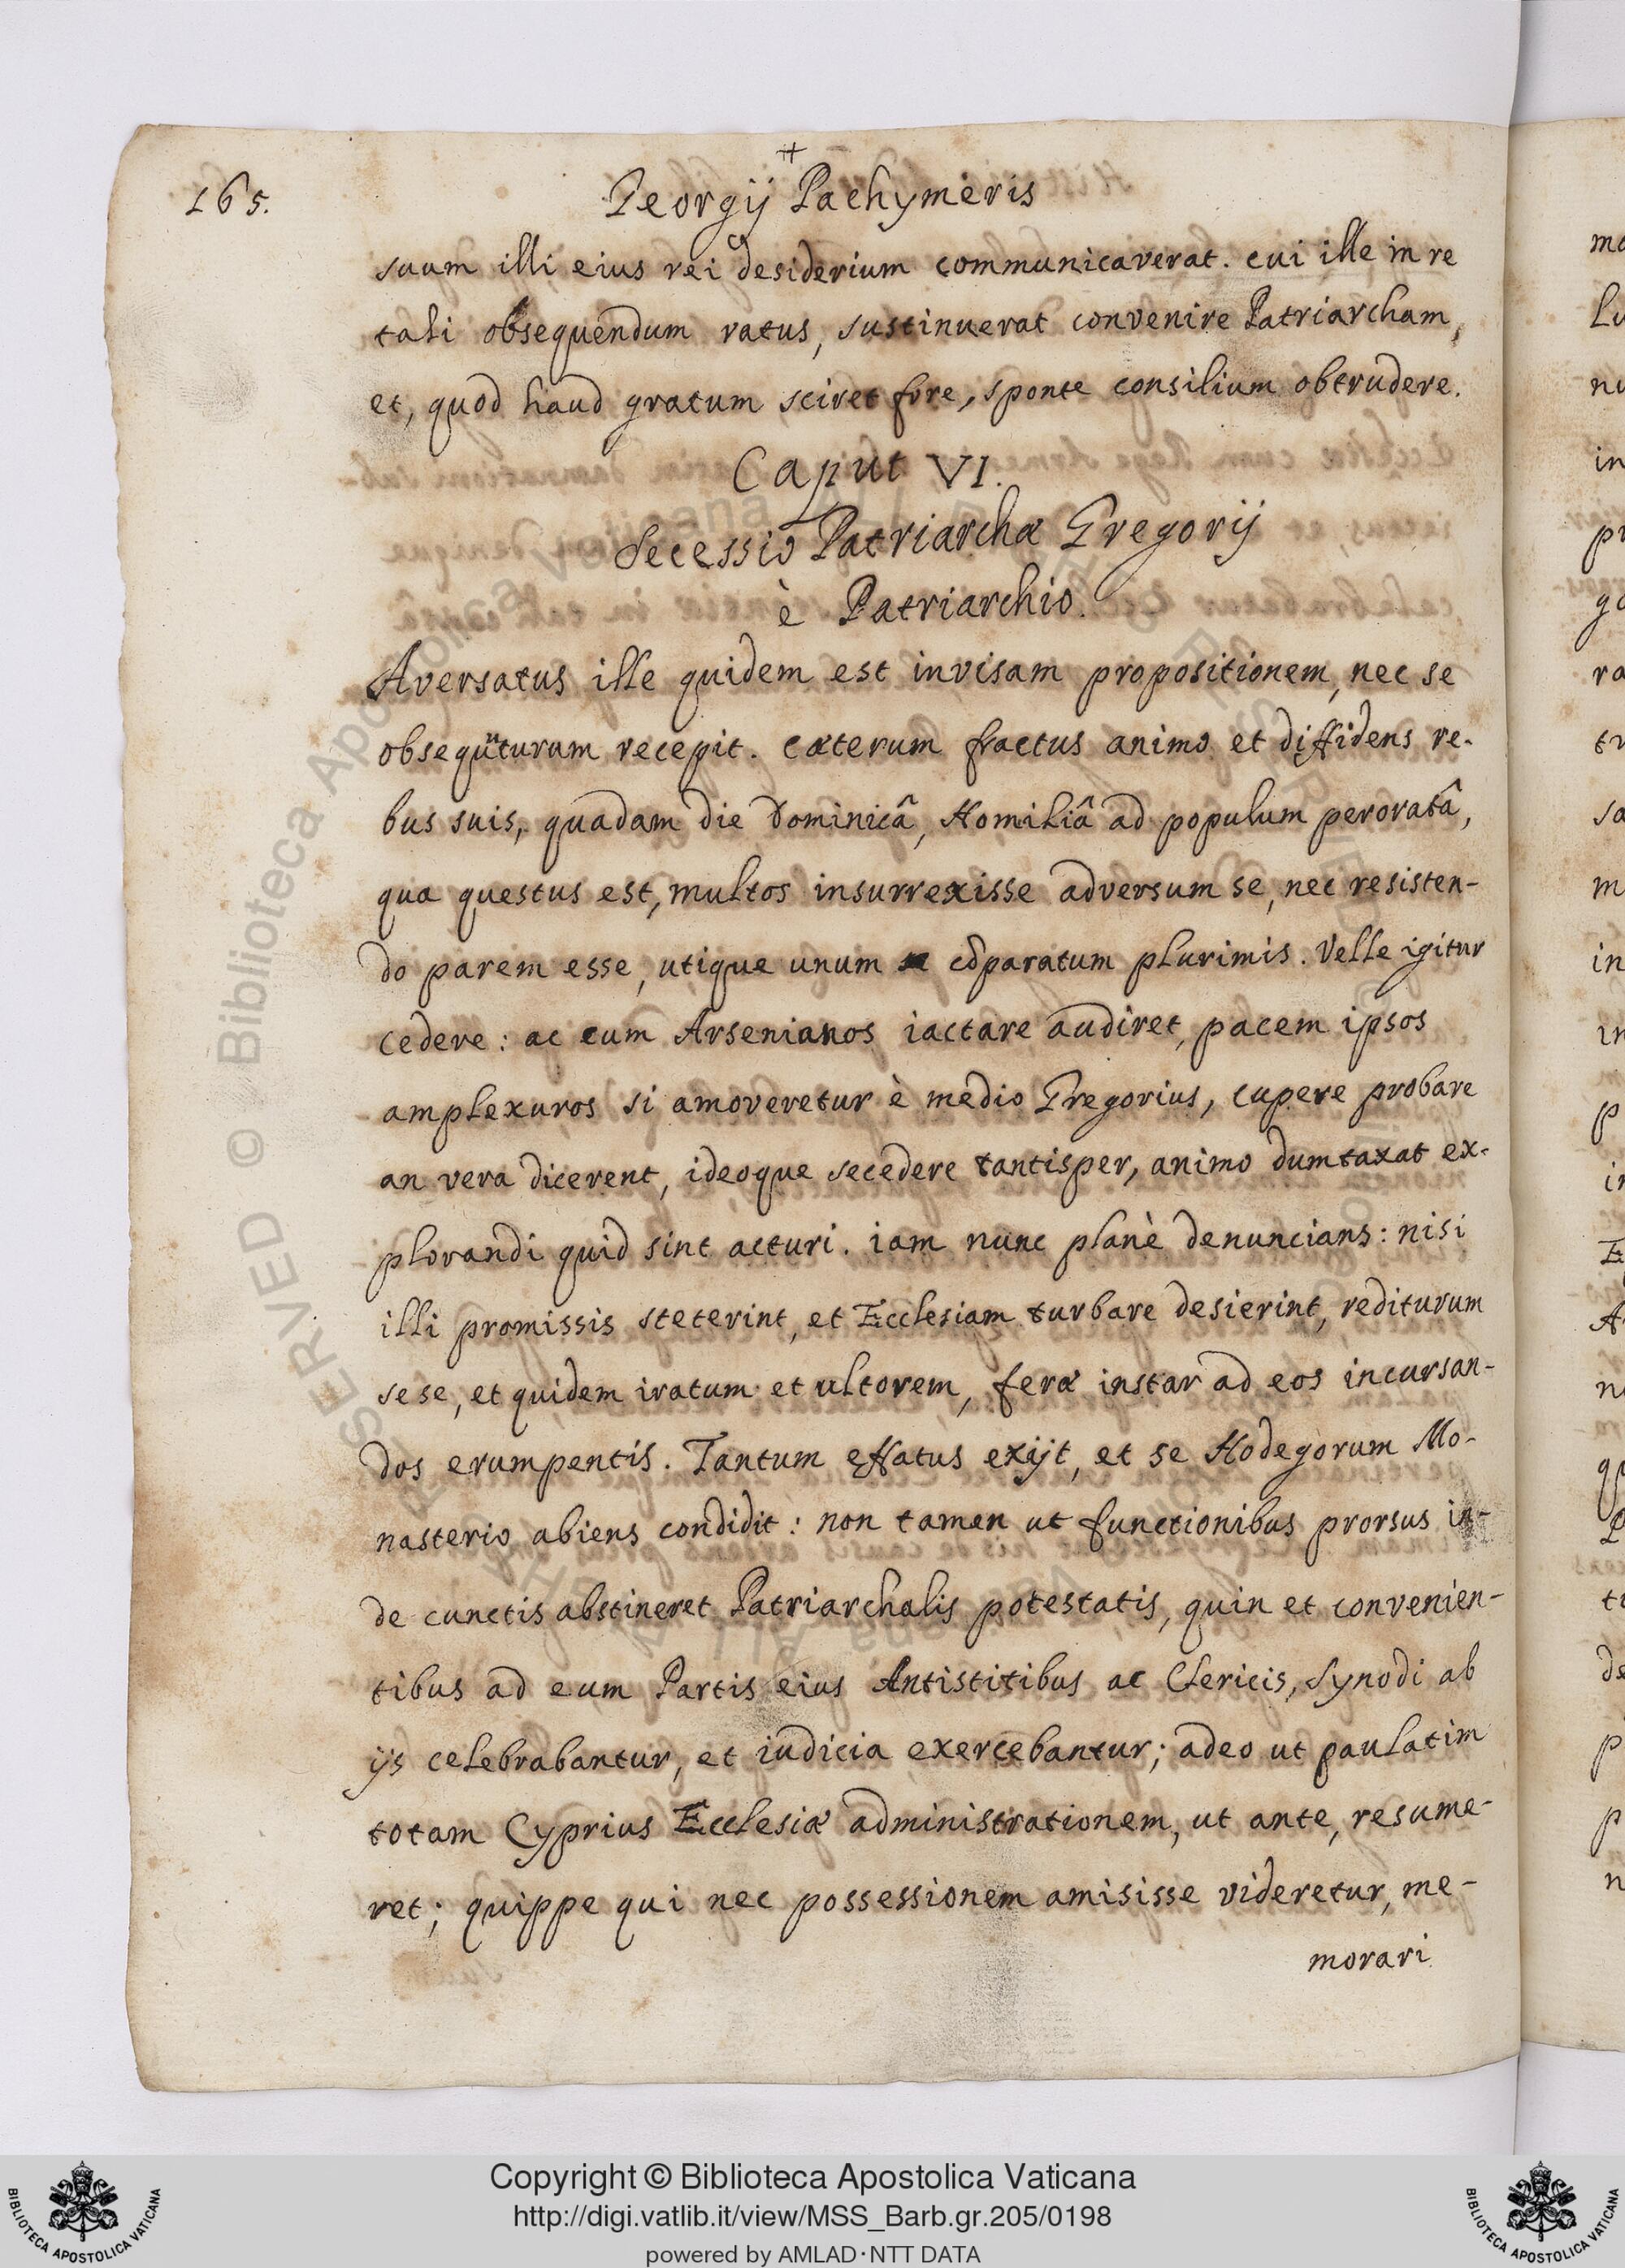 165.
Georgij Pachymeris
suum illi eius rei desiderium communicaverat. cui ille in re
tali obsequendum ratus, sustinuerat convenire Patriarcham,
et, quod haud gratum sciret fore, sponte consilium obtrudere.
Caput VI.
Secessio Patriarchæ Gregorij
è Patriarchio.
Aversatus ille quidem est invisam propositionem, nec se
obseqüuturum recepit. cæterum fractus animo et diffidens re-
bus suis, quadam die Dominicâ, Homiliâ ad populum peroratâ,
qua questus est, multos insurrexisse adversum se, nec resisten-
do parem esse, utique unum cõparatum plurimis. Velle igitur
cedere: ac cum Arsenianos iactare audiret, pacem ipsos
amplexuros si amoveretur è medio Gregorius, cupere probare
an vera dicerent, ideoque secedere tantisper, animo dumtaxat ex-
plorandi quid sint acturi. iam nunc planè denuncians: nisi
illi promissis steterint, et Ecclesiam turbare desierint, rediturum
sese, et quidem iratum et ultorem, feræ instar ad eos incursan-
dos erumpentis. Tantum effatus exijt, et se Hodegorum Mo-
nasterio abiens condidit: non tamen ut functionibus prorsus in-
de cunctis abstineret Patriarchalis potestatis, quin et convenien-
tibus ad eum Partis eius Antistitibus ac Clericis, Synodi ab
ijs celebrabantur, et iudicia exercebantur; adeo ut paulatim
totam Cyprius Ecclesiæ administrationem, ut ante, resume-
ret; quippe qui nec possessionem amisisse videretur, me-
morari
Copyright © Biblioteca Apostolica Vaticana
http://digi.vatlib.it/view/MSS_Barb.gr.205/0198
powered by AMLAD·NTT DATA
BIBLIOTECA APOSTOLICA VATICANA
BIBLIOTECA APOSTOLICA VATICANA